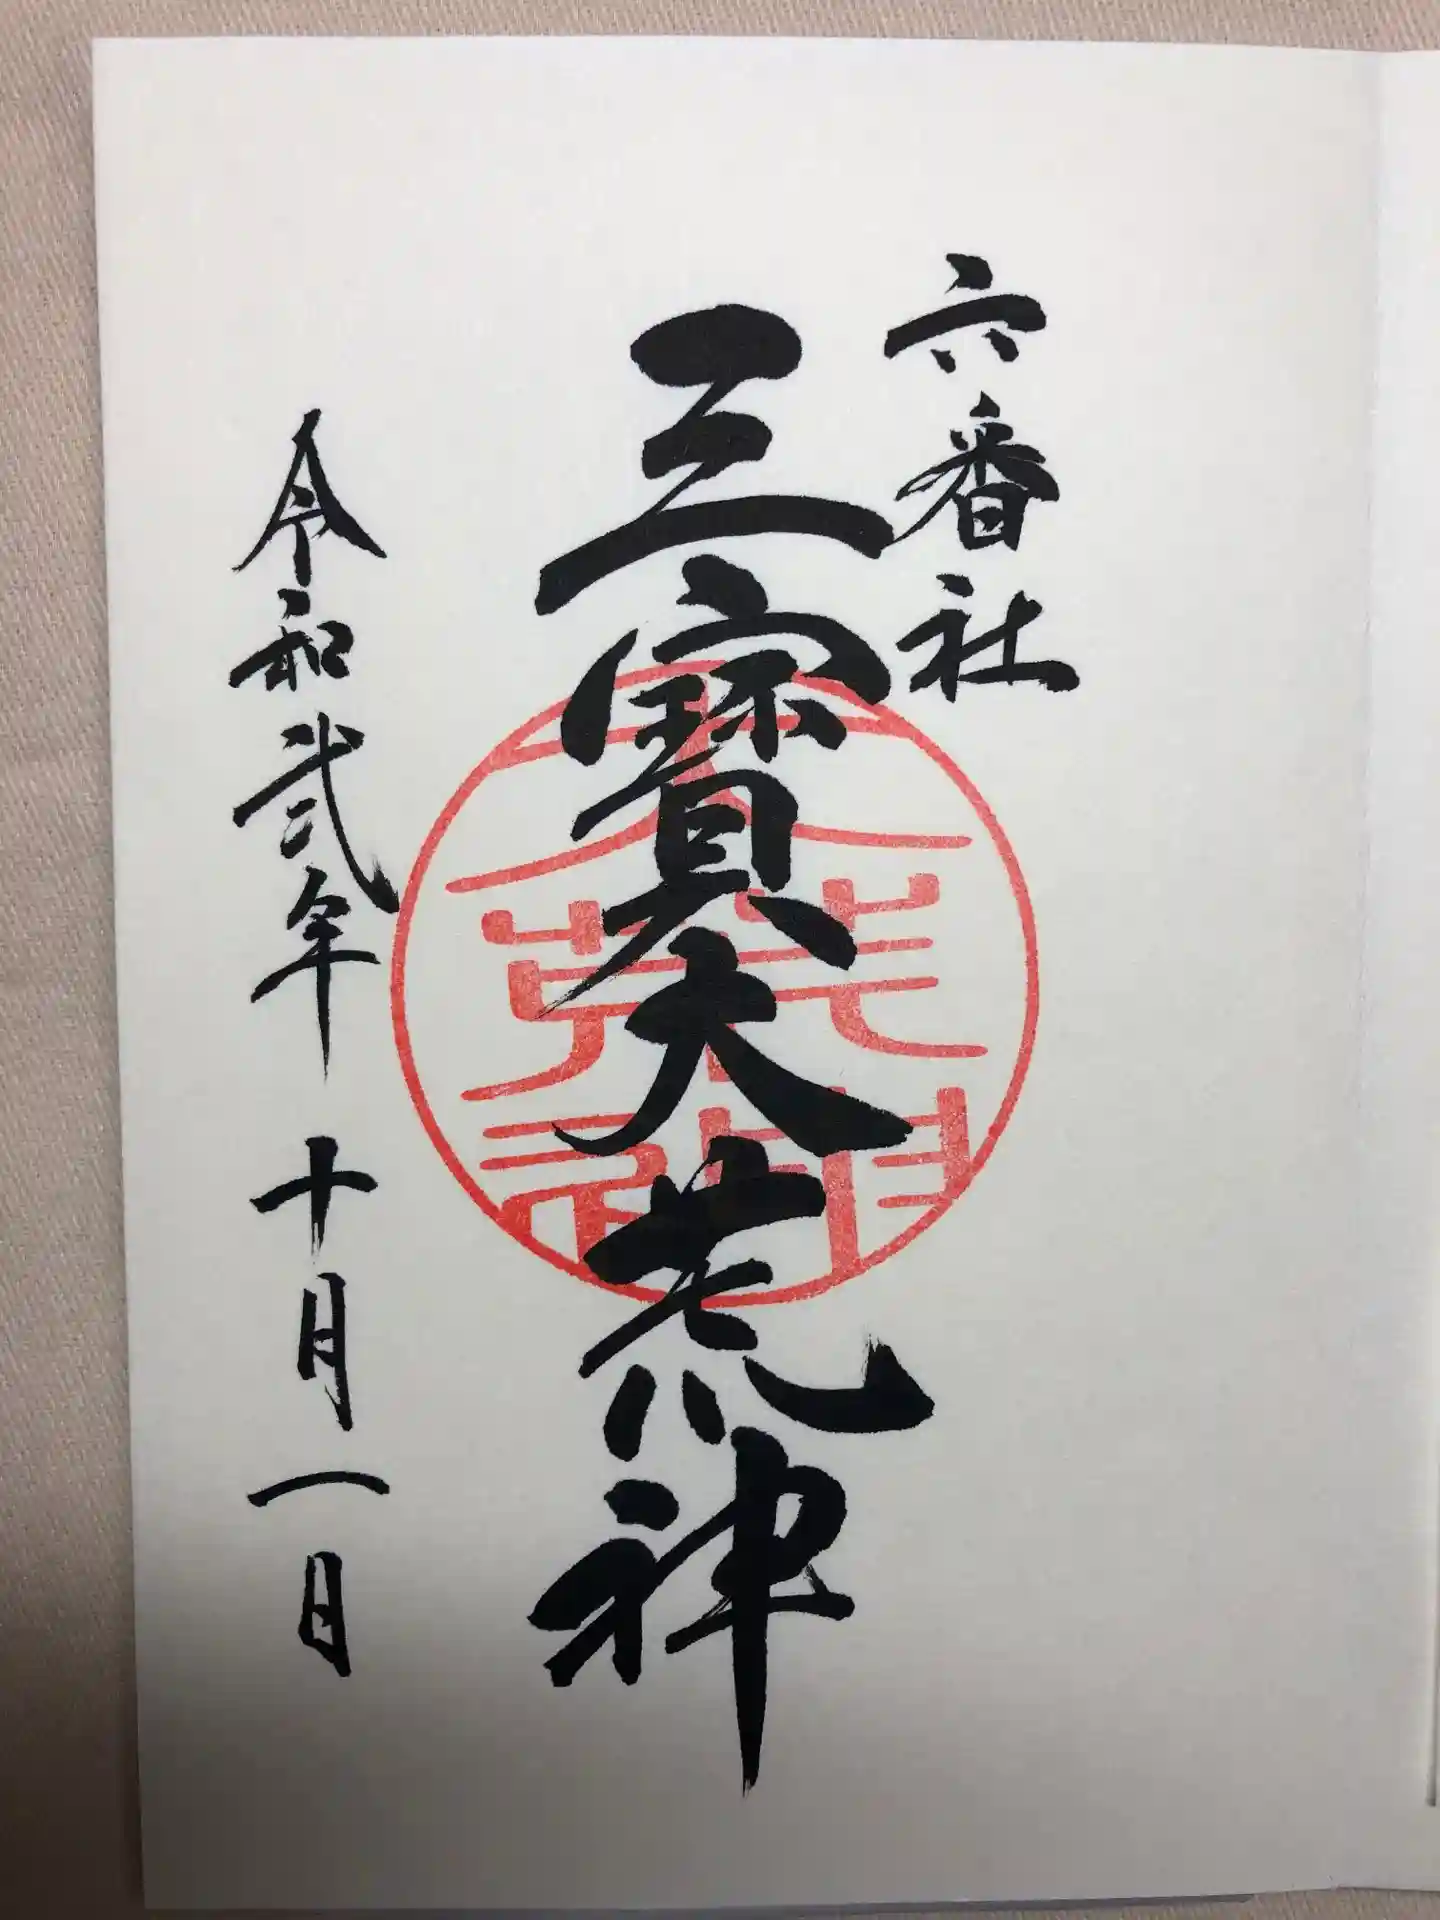 六番社
三寳大荒神
令和弐年 十月一日